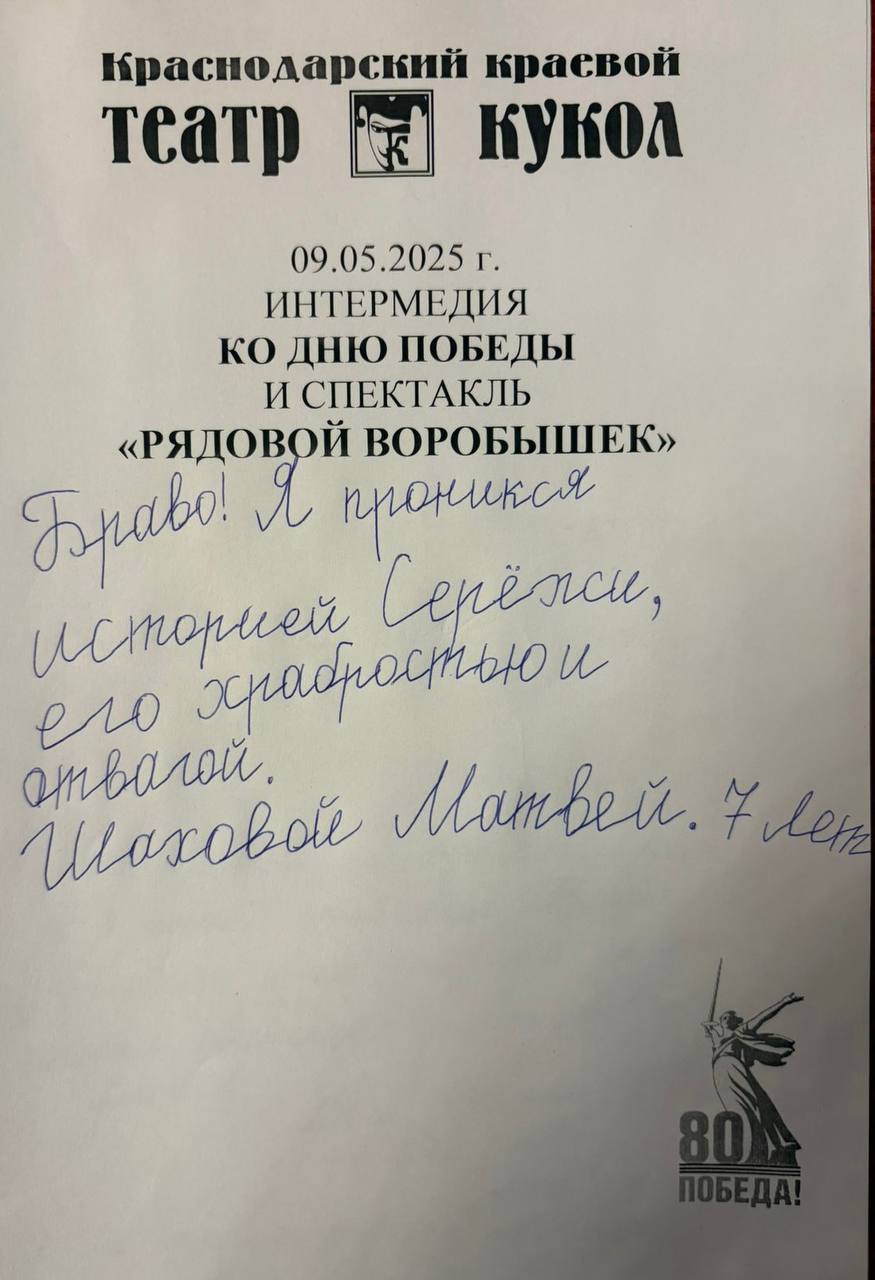 Краснодарский краевой
театр К кукол
09.05.2025 г.
ИНТЕРМЕДИЯ
КО ДНЮ ПОБЕДЫ
И СПЕКТАКЛЬ
«РЯДОВОЙ ВОРОБЫШЕК»
Браво! Я проникся
историей Серёжи,
его храбростью и
отвагой.
Шаховой Матвей. 7 лет
80
ПОБЕДА!